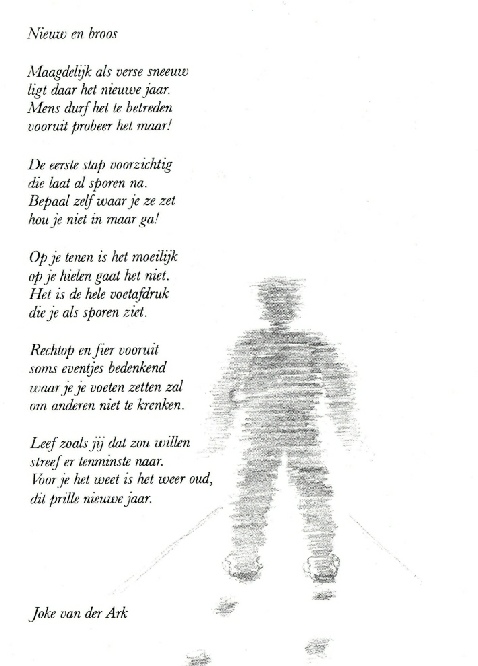 Nieuw en broos
Maagdelijk als verse sneeuw
ligt daar het nieuwe jaar.
Mens durf het te betreden
vooruit probeer het maar!
De eerste stap voorzichtig
die laat al sporen na.
Bepaal zelf waar je ze zet
hou je niet in maar ga!
Op je tenen is het moeilijk
op je hielen gaat het niet.
Het is de hele voetafdruk
die je als sporen ziet.
Rechtop en fier vooruit
soms eventjes bedenkend
waar je je voeten zetten zal
om anderen niet te krenken.
Leef zoals jij dat zou willen
streef er tenminste naar.
Voor je het weet is het weer oud,
dit prille nieuwe jaar.
Joke van der Ark